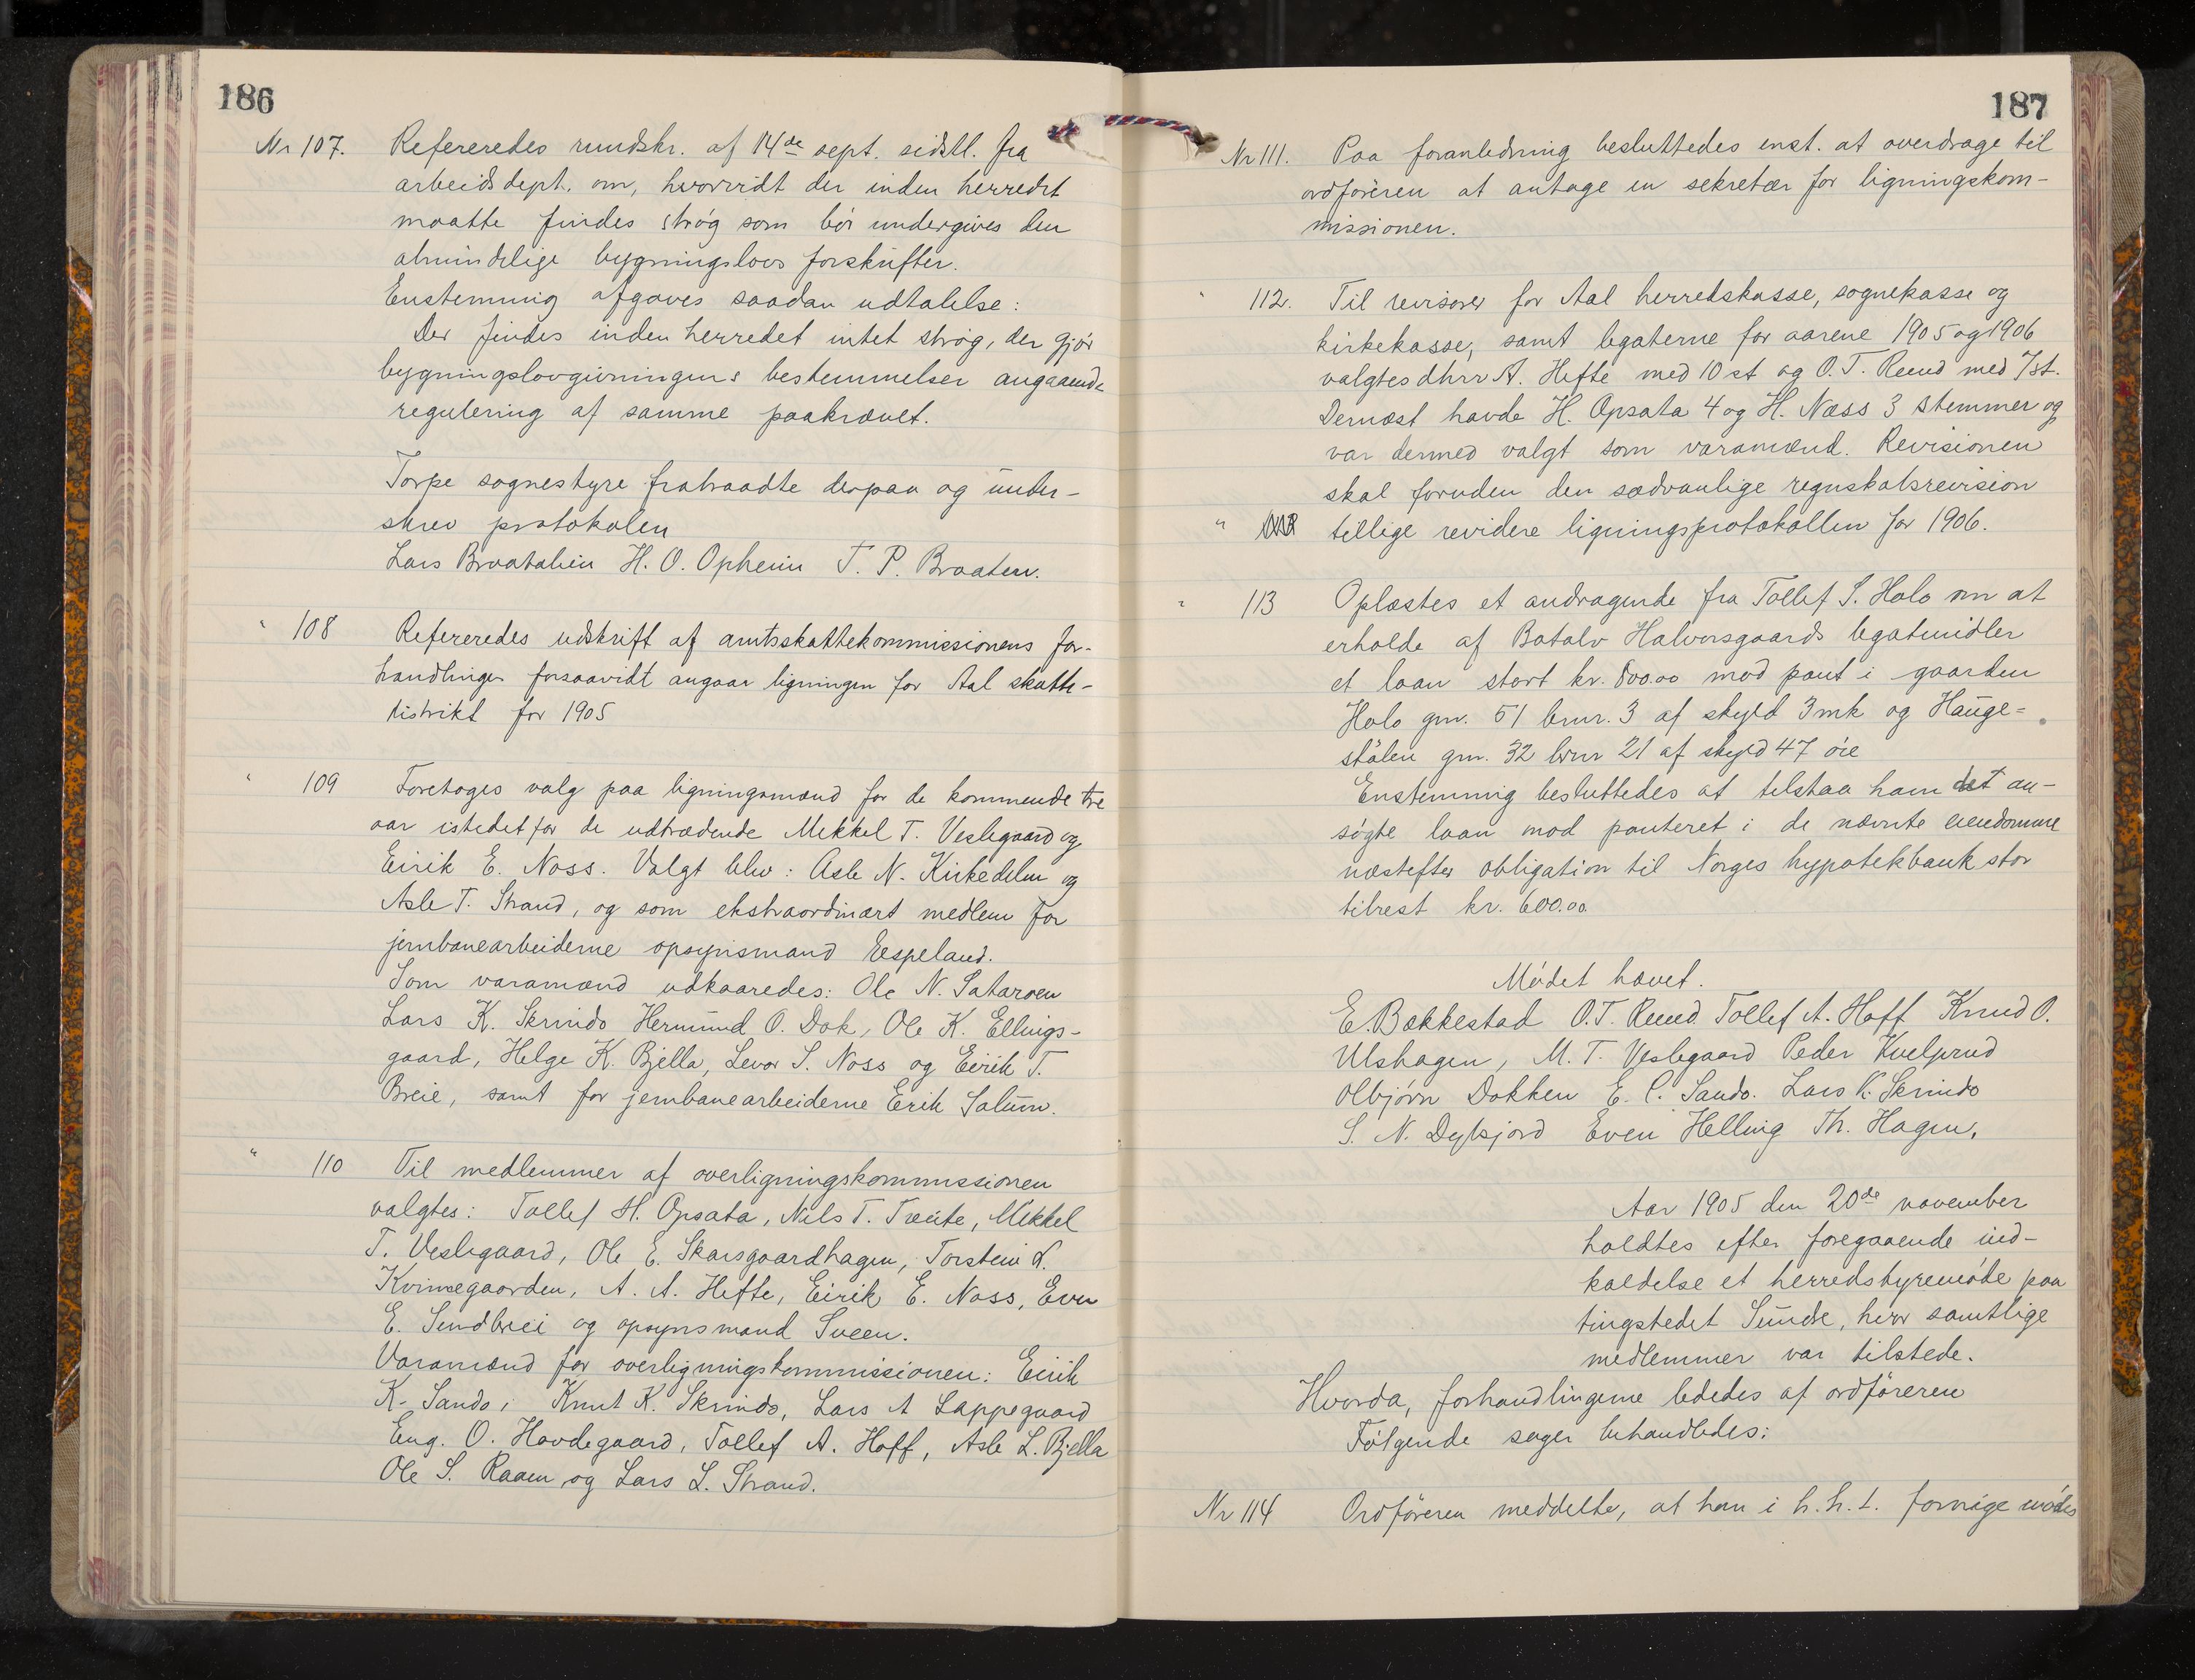 186
Nr 107. Refereredes rundskr. af 14de sept. sidstl. fra
arbeidsdept. om, hvorvidt der inden herredet
maatte findes strøg som bør undergives den
almindelige bygningslovs forskrifter.
Enstemmig afgaves saadan udtalelse:
Der findes inden herredet intet strøg, der gjør
bygningslovgivningens bestemmelser angaaende
regulering af samme paakrævet.
Torpe sognestyre fratraadte derpaa og under-
skrev protokolen
Lars Braatalien H. O. Opheim T. P. Braaten.
" 108 Refereredes udskrift af amtsskattekommissionens for-
handlinger forsaavidt angaar ligningen for Aal skatte-
distrikt for 1905
" 109 Foretoges valg paa ligningsmænd for de kommende tre
aar istedetfor de udtrædende Mekkel T. Veslegaard og
Eirik E. Noss. Valgt blev: Asle N. Kirkedelen og
Asle T. Strand, og som ekstraordinært medlem for
jernbanearbeiderne opsynsmand Espeland.
Som varamænd udkaaredes: Ole N. Sataroen
Lars K. Skrindo Hermund O. Dok, Ole K. Ellings-
gaard, Helge K. Bjella, Levor S. Noss og Eirik T.
Breie, samt for jernbanearbeiderne Erik Salum.
" 110 Til medlemmer af overligningskommissionen
valgtes: Tollef H. Opsata, Nils T. Treite, Mikkel
T. Veslegaard, Ole E. Skarsgaardhagen, Torstein
Kvinnegaarden, A. A. Hefte, Eirik E. Noss, Even
E. Sundbrei og opsynsmand Sveen.
Varamænd for overligningskommissionen: Eirik
K. Sando, Knut K. Skrindo, Lars A Lappegaard
Eng. O. Hovdegaard, Tollef A. Hoff, Asle L. Bjella
Ole S. Raaen og Lars L. Strand.
187
Nr 111. Paa foranledning besluttedes enst. at overdrage til
ordføreren at antage en sekretær for ligningskom-
missionen.
" 112. Til revisorer for Aal herredskasse, sognekasse og
kirkekasse, samt legaterne for aarene 1905 og 1906
valgtes dhrr A. Hefte med 10 st og O. T. Ruud med 7 st.
Dernæst havde H. Opsata 4 og H. Næss 3 stemmer og
var dermed valgt som varamænd. Revisionen
skal foruden den sædvanlige regnskabsrevision
" tillige revidere ligningsprotokollen for 1906.
" 113 Oplæstes et andragende fra Tollef S. Holo om at
erholde af Botolv Halvorsgaards legatmidler
et laan stort kr. 800.00 mod pant i gaarden
Holo gnr. 51 brnr. 3 af skyld 3 mk og Hauge-
stølen gnr. 32 brnr 21 af skyld 47 øre
Enstemmig besluttedes at tilstaa ham det an-
søgte laan mod panteret i de nævnte eiendomme
næstefter obligation til Norges hypotekbank stor
tilrest kr. 600.00
Mødet hævet.
E. Bækkestad O.T. Ruud. Tollef A. Hoff Knud O.
Ulshagen, M. T. Veslegaard Peder Kvelprud
Olbjørn Dokken E. C. Sando. Lars K. Skrindo
S. N. Dyksjord Even Helling Th. Hagen.
Aar 1905 den 20de november
holdtes efter foregaaende ind-
kaldelse et herredstyremøde paa
tingstedet Sundre, hvor samtlige
medlemmer var tilstede.
Hvorda, forhandlingerne lededes af ordføreren
Følgende sager behandledes:
Nr 114 Ordføreren meddelte, at han i h. h. t. forrige mødes